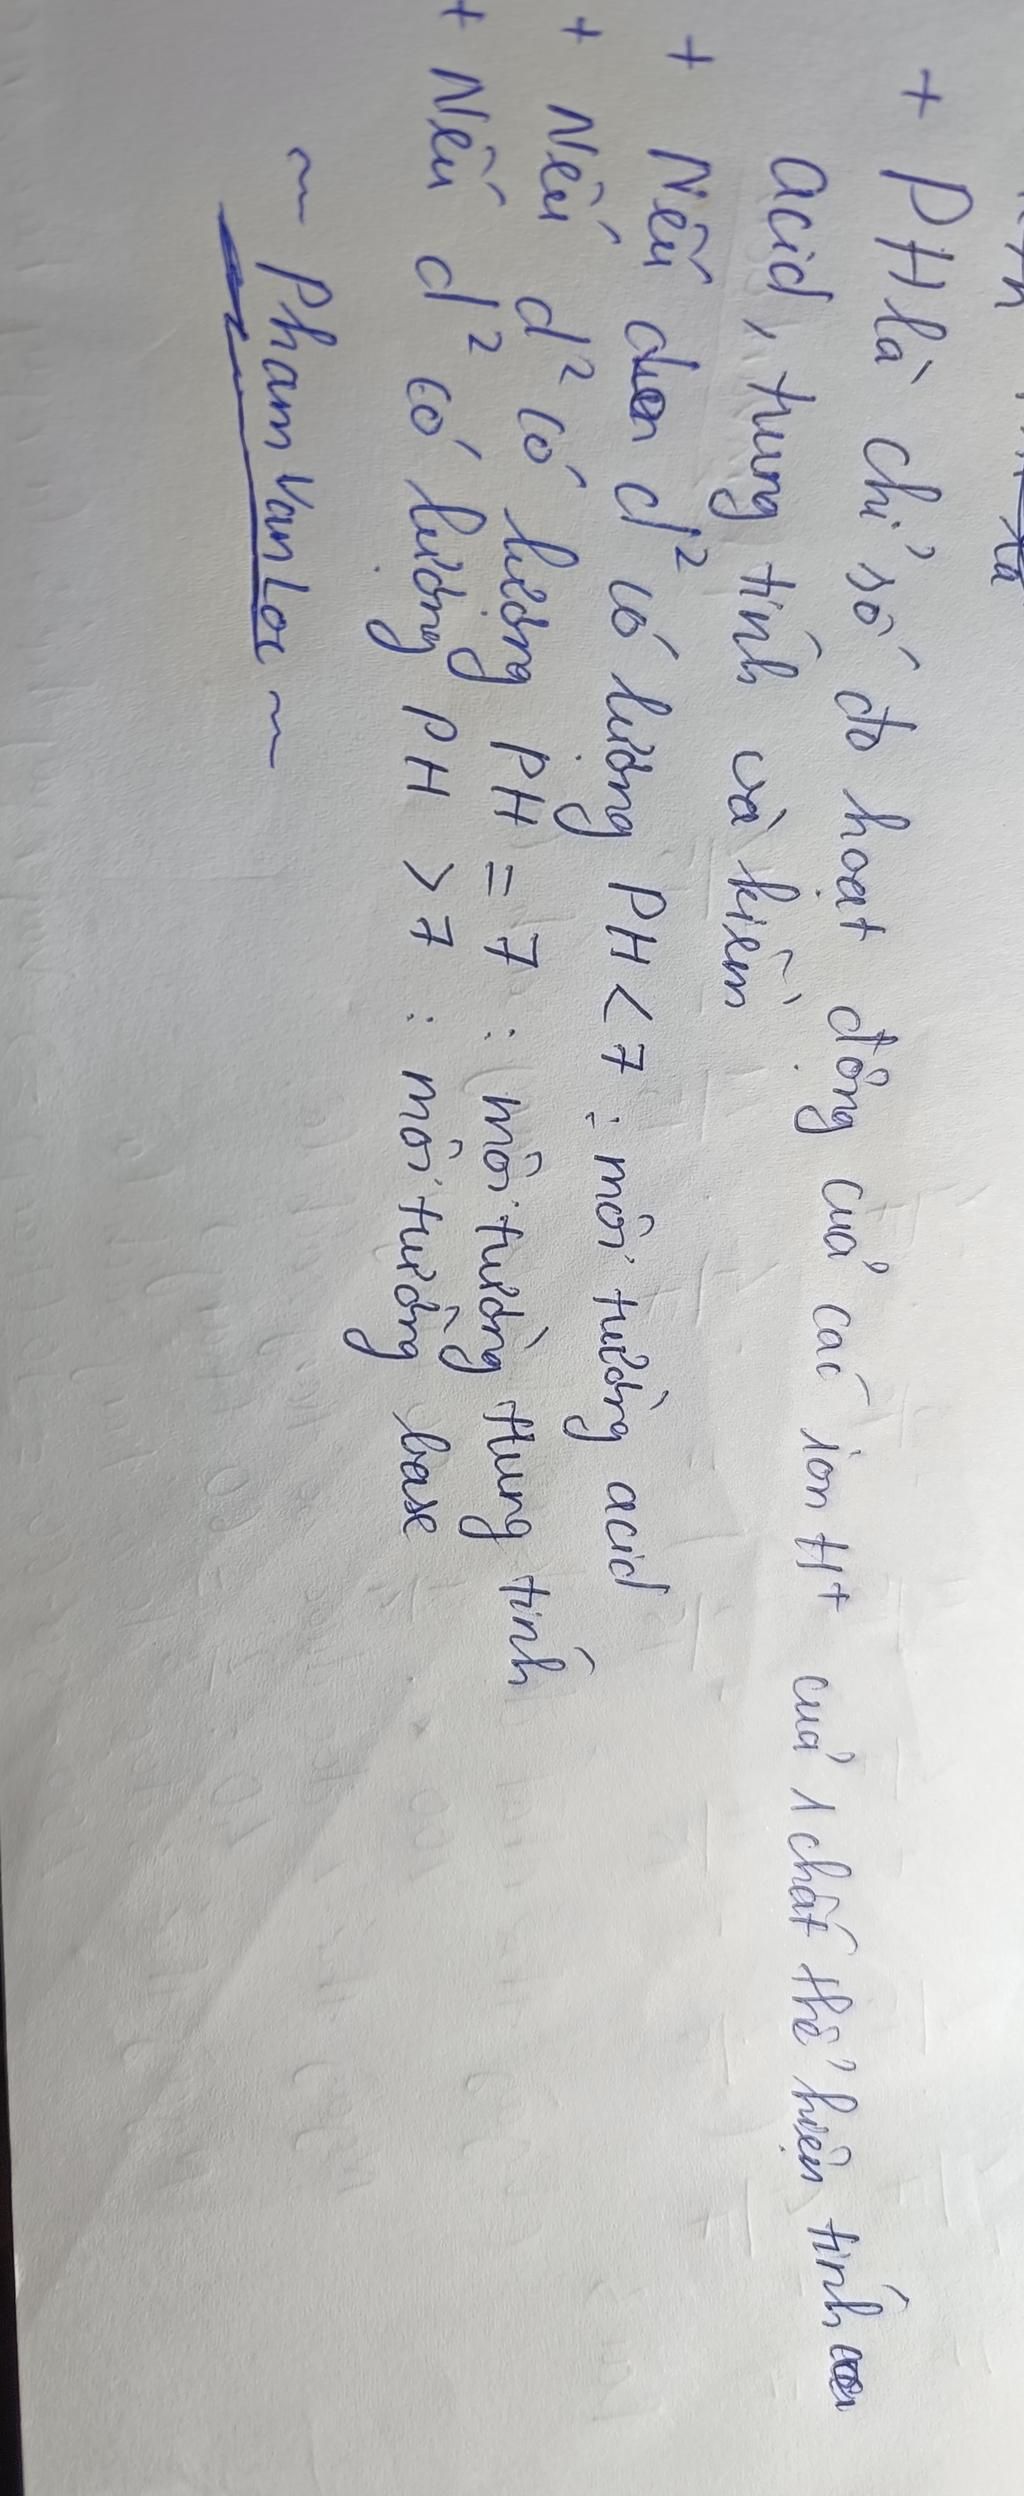 + PH là chỉ số đo hoạt động của các ion H+ của 1 chất thể hiện tính
acid, trung tính và kiềm
+ Nếu d² có lượng PH < 7 : môi trường acid
+ Nếu d² có lượng PH = 7 : môi trường trung tính
+ Nếu d² có lượng PH > 7 : môi trường base
~ Pham Van Loc ~